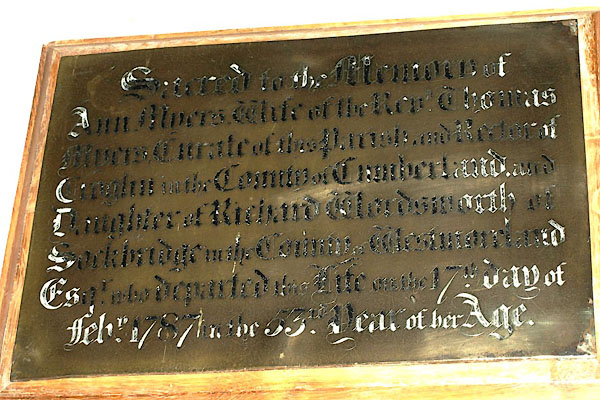 Sacred to the Memory of
Ann Myers Wife of the Revd. Thomas
Myers Curate of this Parish and Rector of
Croglin in the County of Cumberland, and
Daughter of Richard Wordsworth of
Sockbridge in the County of Westmorland
Esqr. who departed this Life on the 17th day of
Feby. 1787 in the 53rd. Year of her Age.